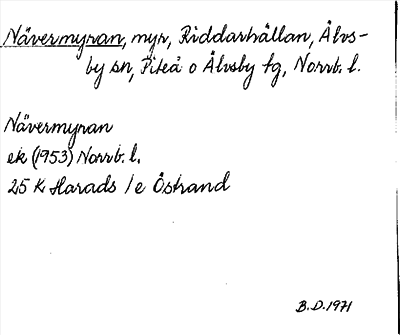 Nävermyran, myr, Riddarhällan, Älvs-
by sn, Piteå o Älvsby tg, Norrb. l.
Nävermyran
ek (1953) Norrb. l.
25 K Harads / e Östrand
B.D. 1971